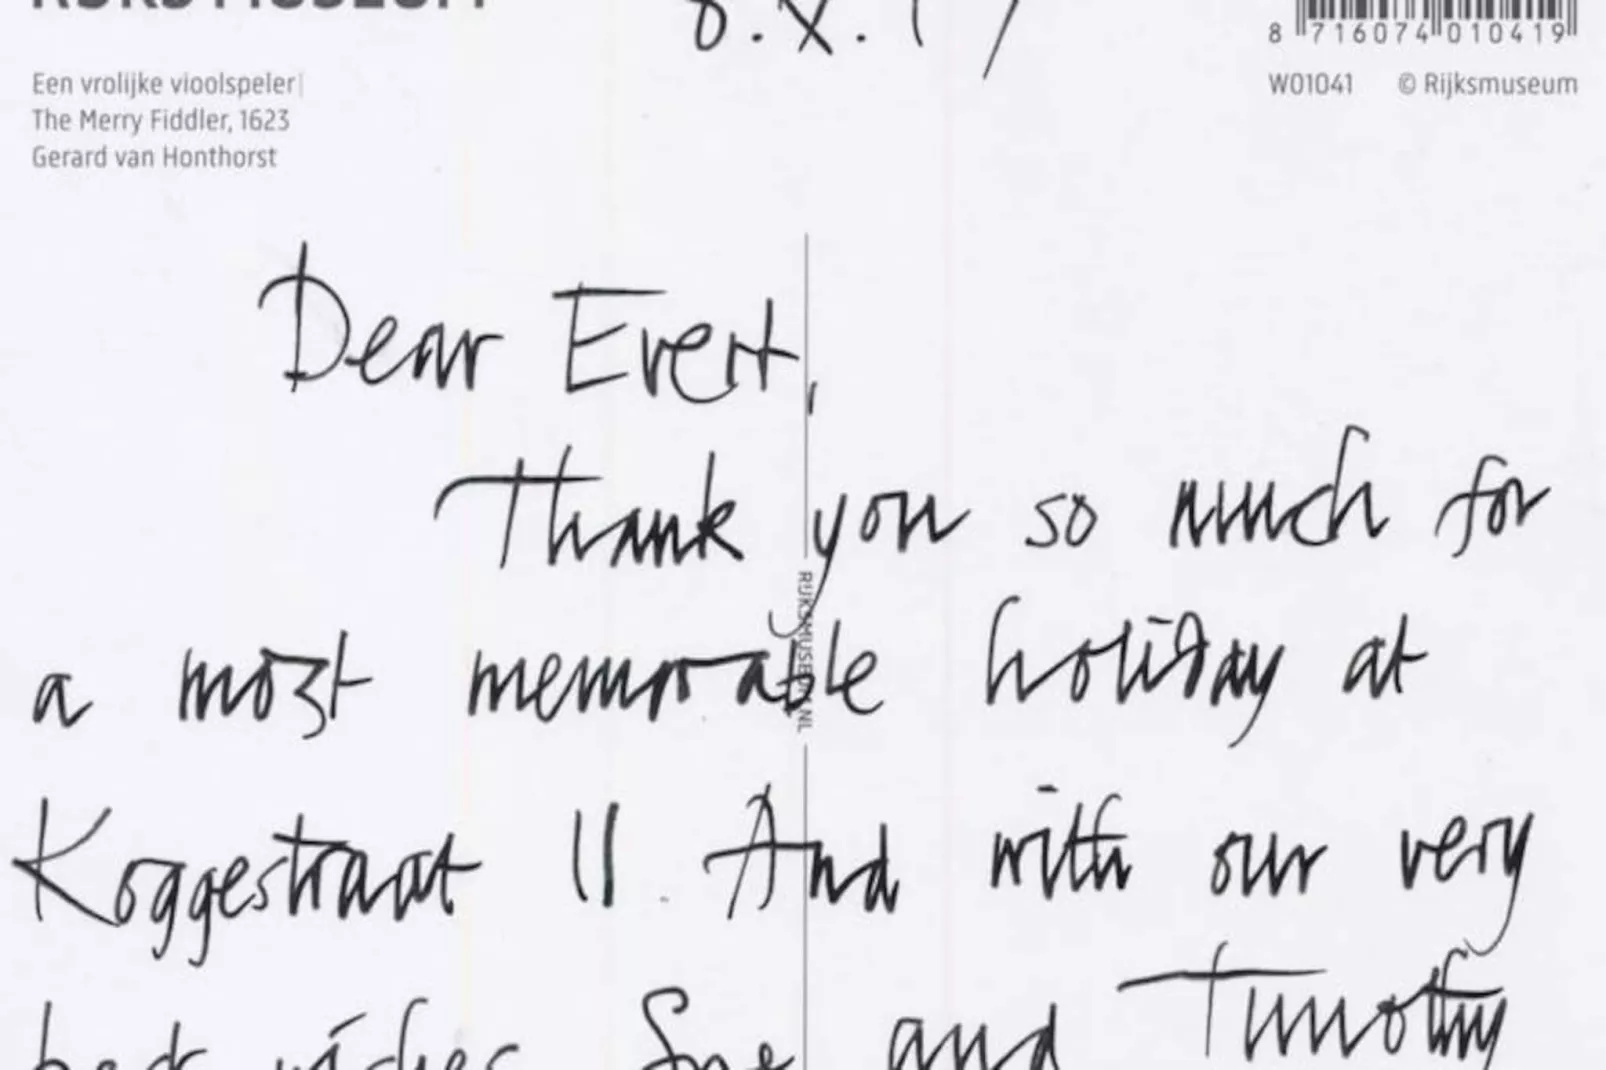 RIJKSMUSEUM
8.X.17
8 716074 010419
Een vrolijke vioolspeler|
The Merry Fiddler, 1623
Gerard van Honthorst
W01041 © Rijksmuseum
Dear Evert,
Thank you so much for
a most memorable holiday at
Koggestraat 11. And with our very
best wishes Sue and Timothy
RIJKSMUSEUM.NL